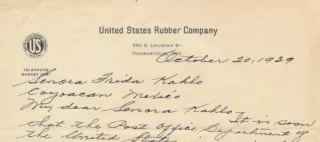 United States Rubber Company
INDIANAPOLIS, IND.
October 20, 1939
US
TELEPHONE
MARKET
Senora Frida Kahlo
Coyoacan Mexico
My dear Senora Kahlo
It is soon
that the Post Office Department of
the United States